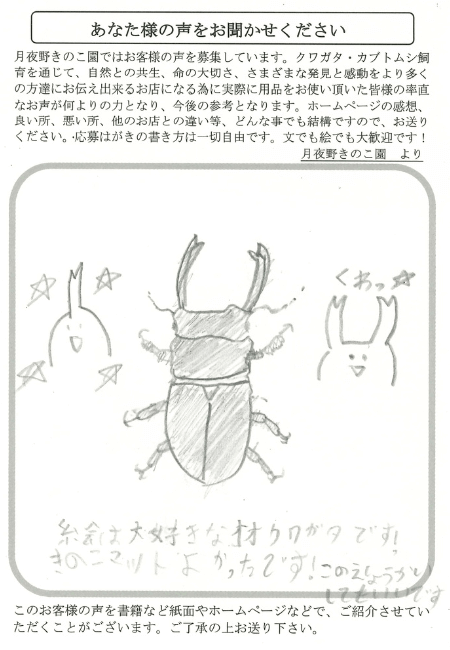 あなた様の声をお聞かせください
月夜野きのこ園ではお客様の声を募集しています。クワガタ・カブトムシ飼
育を通じて、自然との共生、命の大切さ、さまざまな発見と感動をより多く
の方達にお伝え出来るお店になる為に実際に用品をお使い頂いた皆様の率直
なお声が何よりの力となり、今後の参考となります。ホームページの感想、
良い所、悪い所、他のお店との違い等、どんな事でも結構ですので、お送り
ください。応募はがきの書き方は一切自由です。文でも絵でも大歓迎です！
月夜野きのこ園　より
くわっ☆
絵は大好きなオオクワガタです!
きのこマットよかったです!
このえしょうかい
してもいいです
このお客様の声を書籍など紙面やホームページなどで、ご紹介させてい
ただくことがございます。ご了承の上お送り下さい。